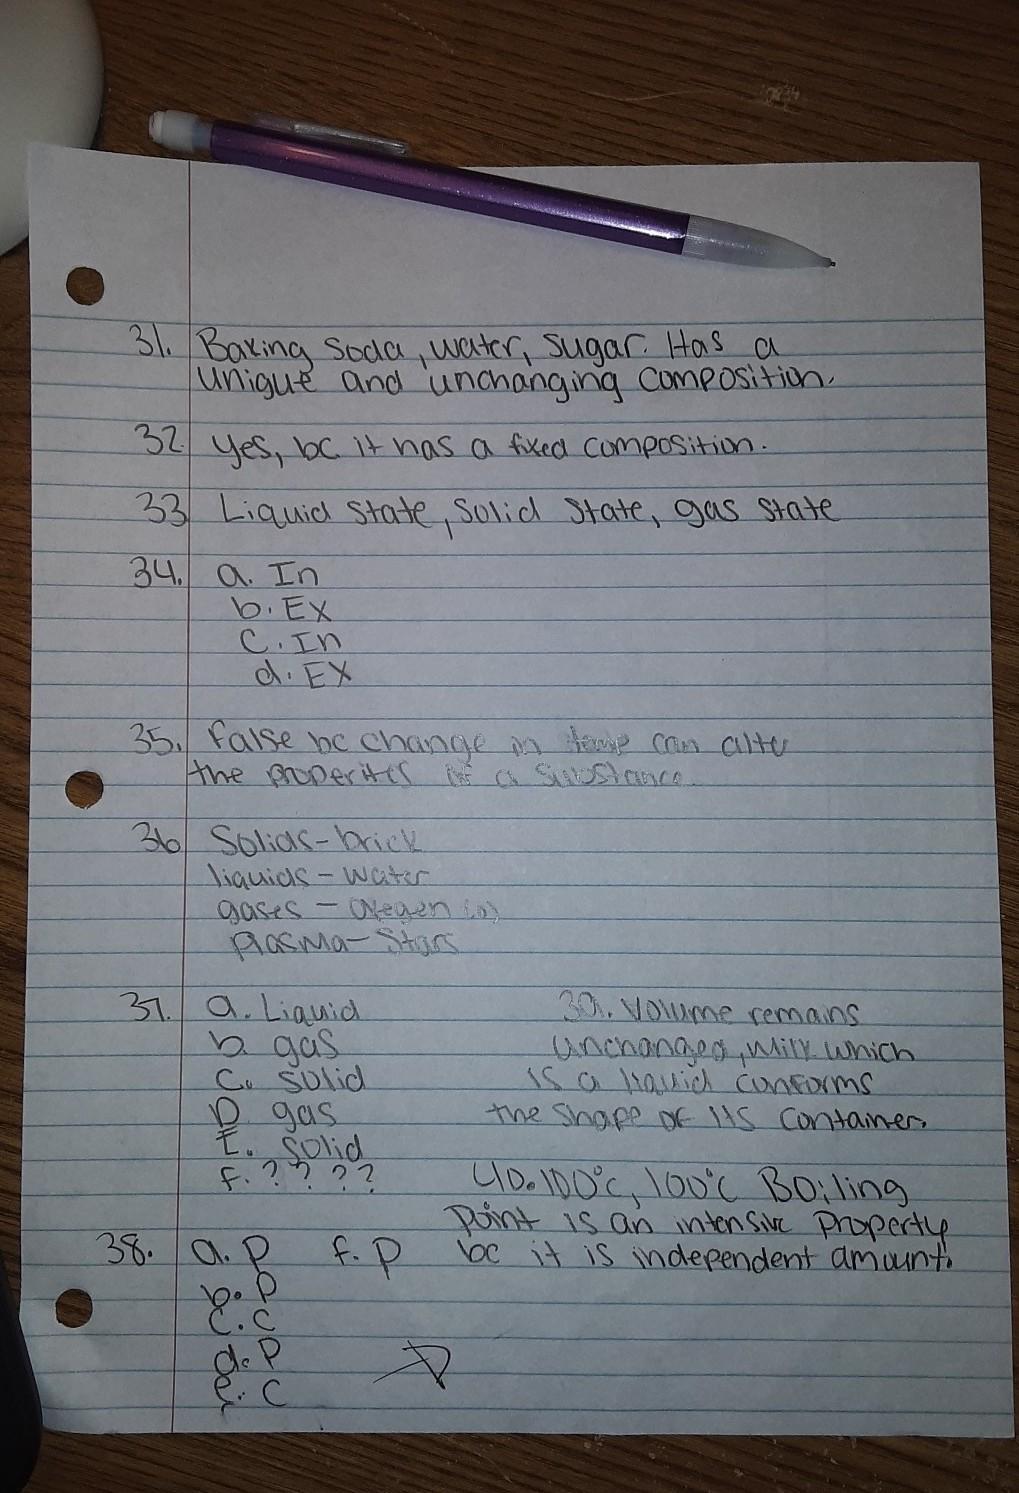 31. Baking soda, water, sugar. Has a
unique and unchanging composition.
32. yes, bc it has a fixed composition.
33 Liquid state, solid state, gas state
34. a. In
b. Ex
C. In
d. EX
35. false bc change in temp can alter
the properites of a substance.
36 Solids - brick
liquids - water
gases - oxegen (o)
plasma - Stars
37. a. Liquid
b. gas
C. solid
D. gas
E. solid
f. ? ? ? ?
38. a. p f. p
b. p
C. C
d. P
e. C
39. volume remains
unchanged, milk which
is a liquid conforms
the shape of its container.
40. 100°c, 100°c Boiling
point is an intensive property
bc it is independent amount.